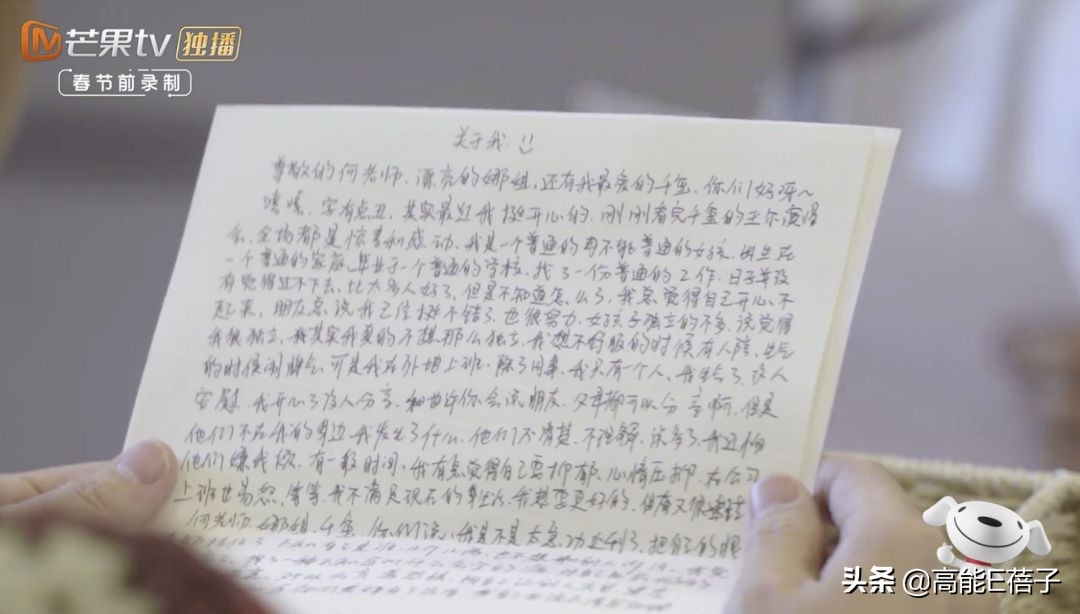 芒果tv 独播
春节前录制
关于我
尊敬的何老师、漂亮的娜姐、还有我最爱的千玺、你们好呀~
嘻嘻、字有点丑、其实最近我挺开心的、刚刚看完千玺的玉尔演唱
会、全场都是惊喜和感动、我是一个普通的再不能普通的女孩、出生在
一个普通的家庭、毕业于一个普通的学校、找了一份普通的工作、日子并没
有觉得过不下去、比大多人好了、但是不知道怎么了、我总觉得自己开心不
起来、朋友总说我已经挺不错了、也很努力、女孩子独立的不多、说觉得
我很独立、我其实我真的不想那么独立、我想不舒服的时候有人陪、生气
的时候闹脾气、可是我在外地上班、除了同事、我只有一个人、我生气了、没人
安慰、我开心了没人分享、和也许你会说朋友、父母都可以分享啊、但是
他们不在我的身边、我发生了什么、他们不清楚、不理解、说多了、我还怕
他们嫌我烦、有一段时间、我有点觉得自己要抑郁、心情压抑、在公司
上班也易怒、等等、我不满足现在的生活、我想要更好的、但有又很
何老师、娜姐、千玺、你们说、我是不是太急功近利了、把自己的
头条 @高能E蓓子